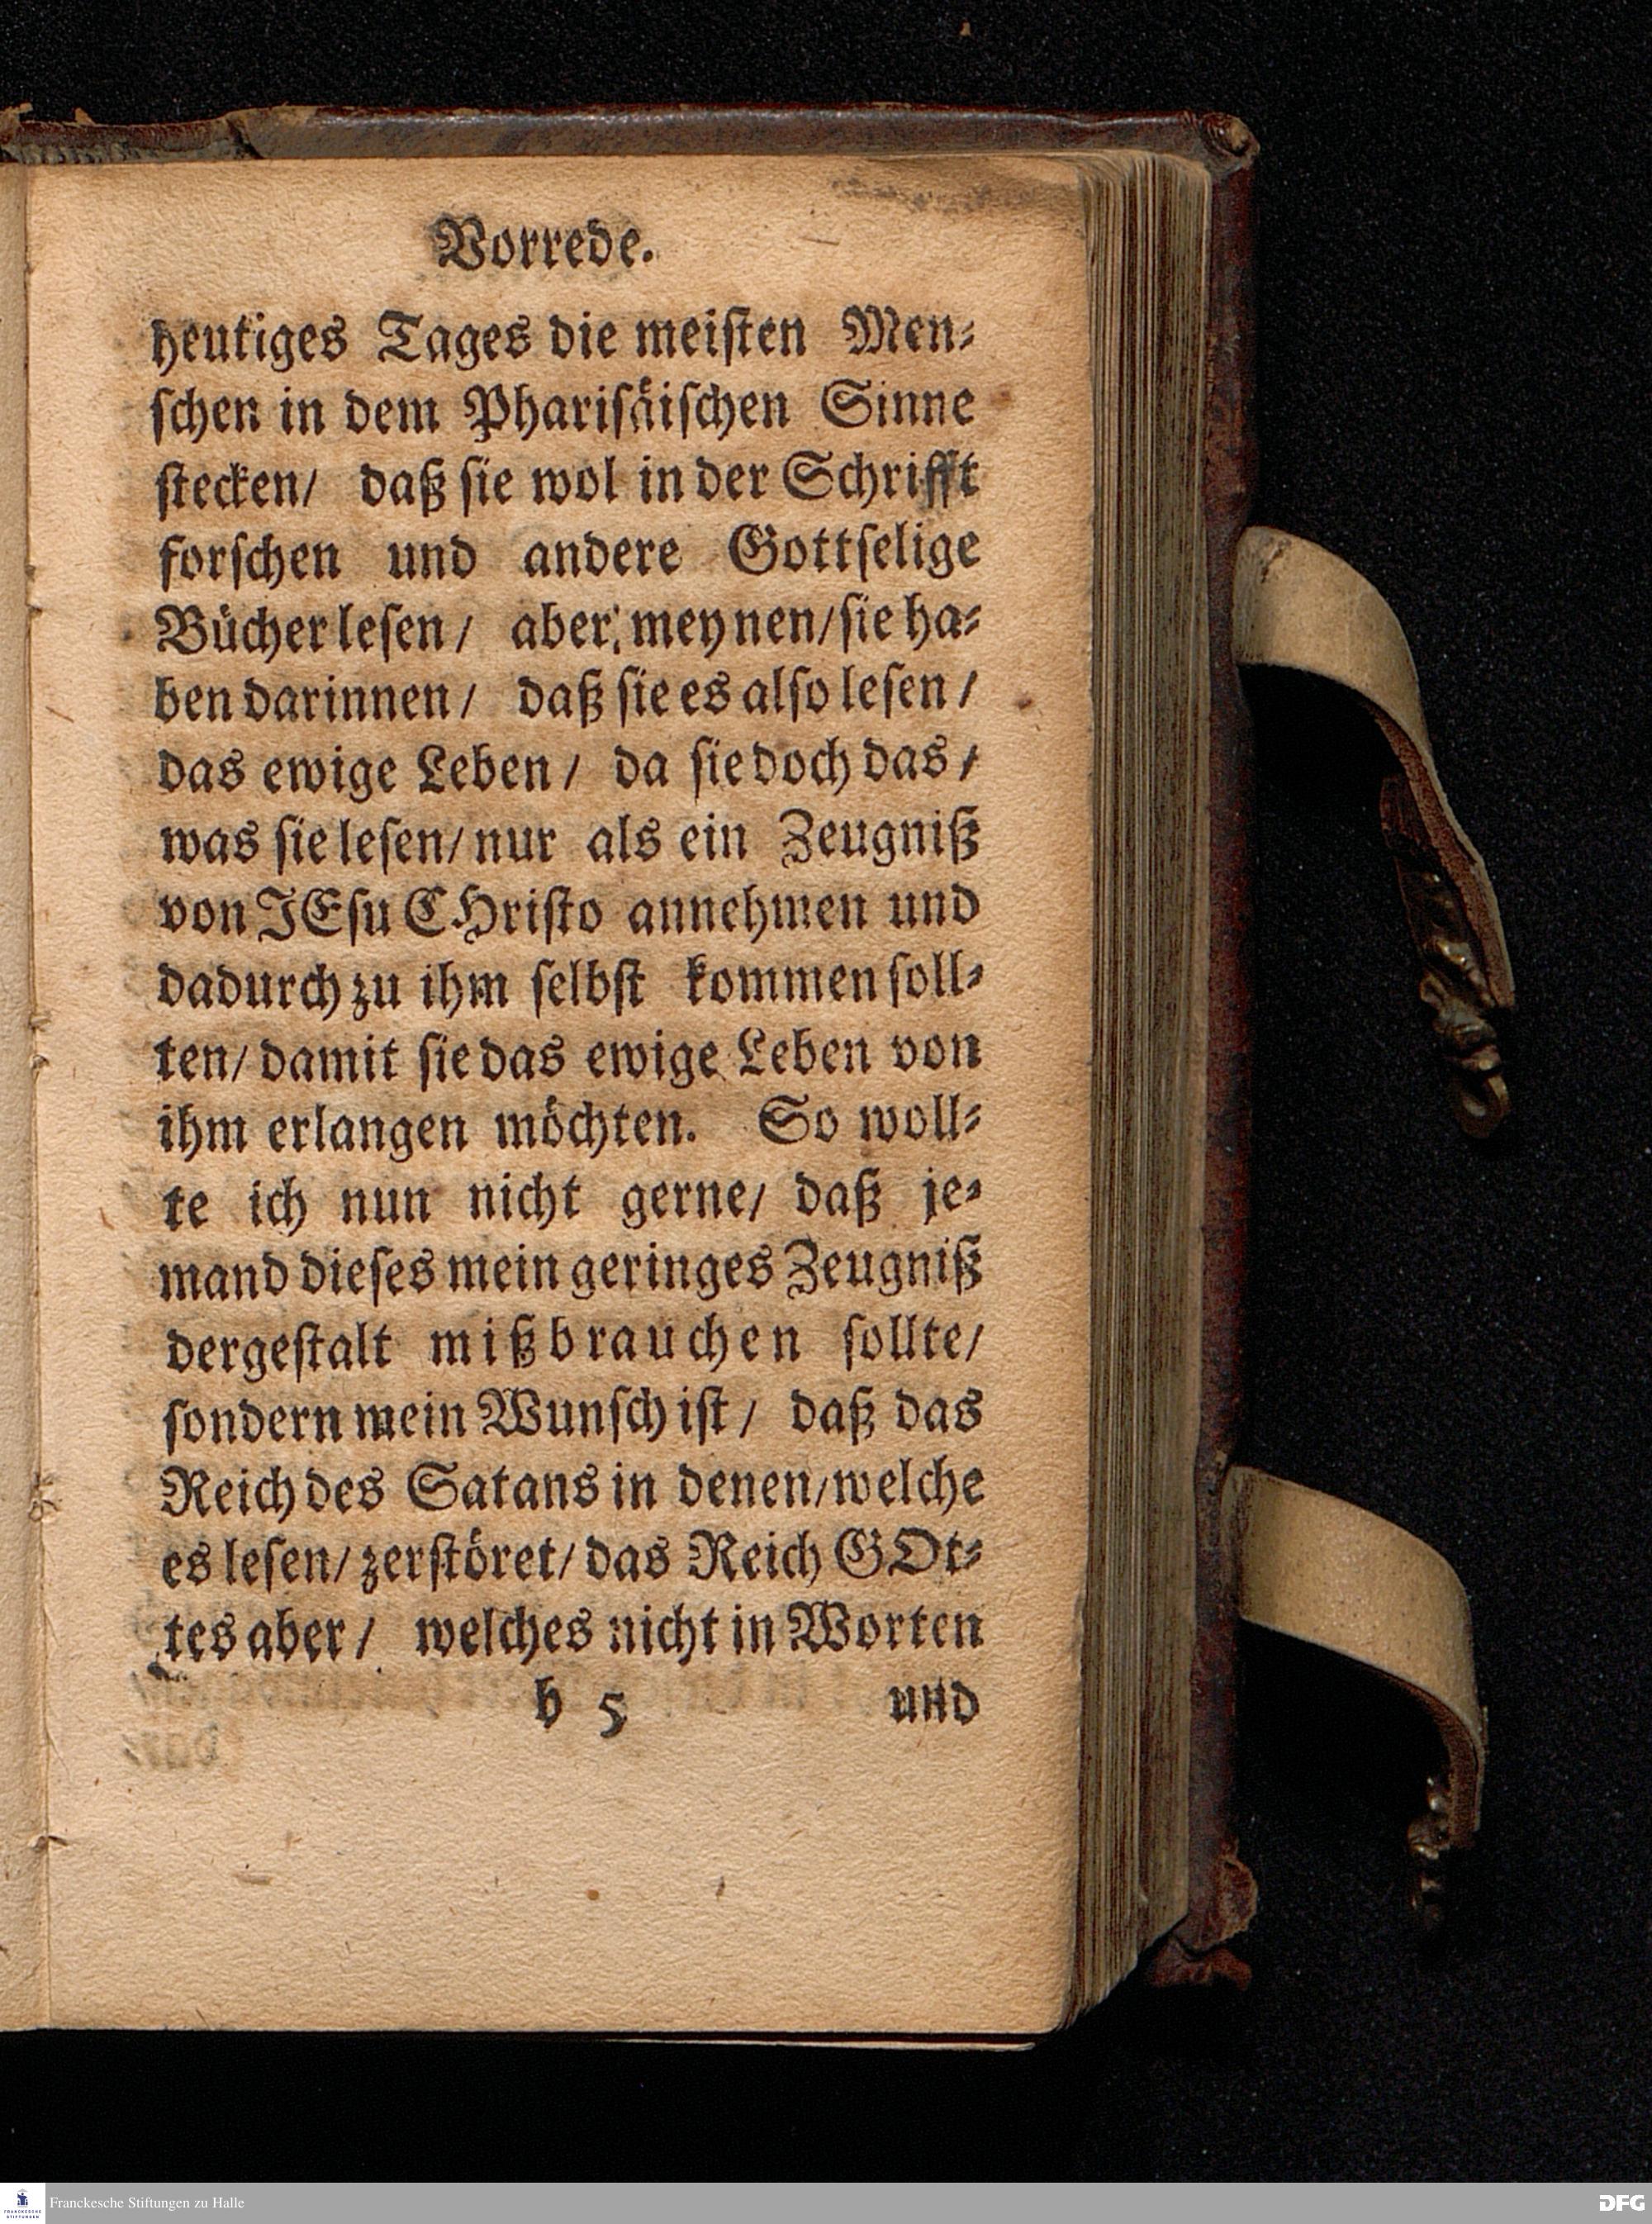 Vorrede.
heutiges Tages die meiſten Men⸗
ſchen in dem Phariſäiſchen Sinne
ſtecken/ daß ſie wol in der Schrifft
forſchen und andere Gottſelige
Bücher leſen/ aber meynen/ ſie ha⸗
ben darinnen/ daß ſie es alſo leſen/
das ewige Leben/ da ſie doch das/
was ſie leſen/ nur als ein Zeugniß
von JEſu CHriſto annehmen und
dadurch zu ihm ſelbſt kommen ſoll⸗
ten/ damit ſie das ewige Leben von
ihm erlangen möchten. So woll⸗
te ich nun nicht gerne/ daß je⸗
mand dieſes mein geringes Zeugniß
dergeſtalt mißbrauchen ſollte/
ſondern mein Wunſch iſt/ daß das
Reich des Satans in denen/ welche
es leſen/ zerſtöret/ das Reich GOt⸗
tes aber/ welches nicht in Worten
b 5 und
Franckesche Stiftungen zu Halle
DFG